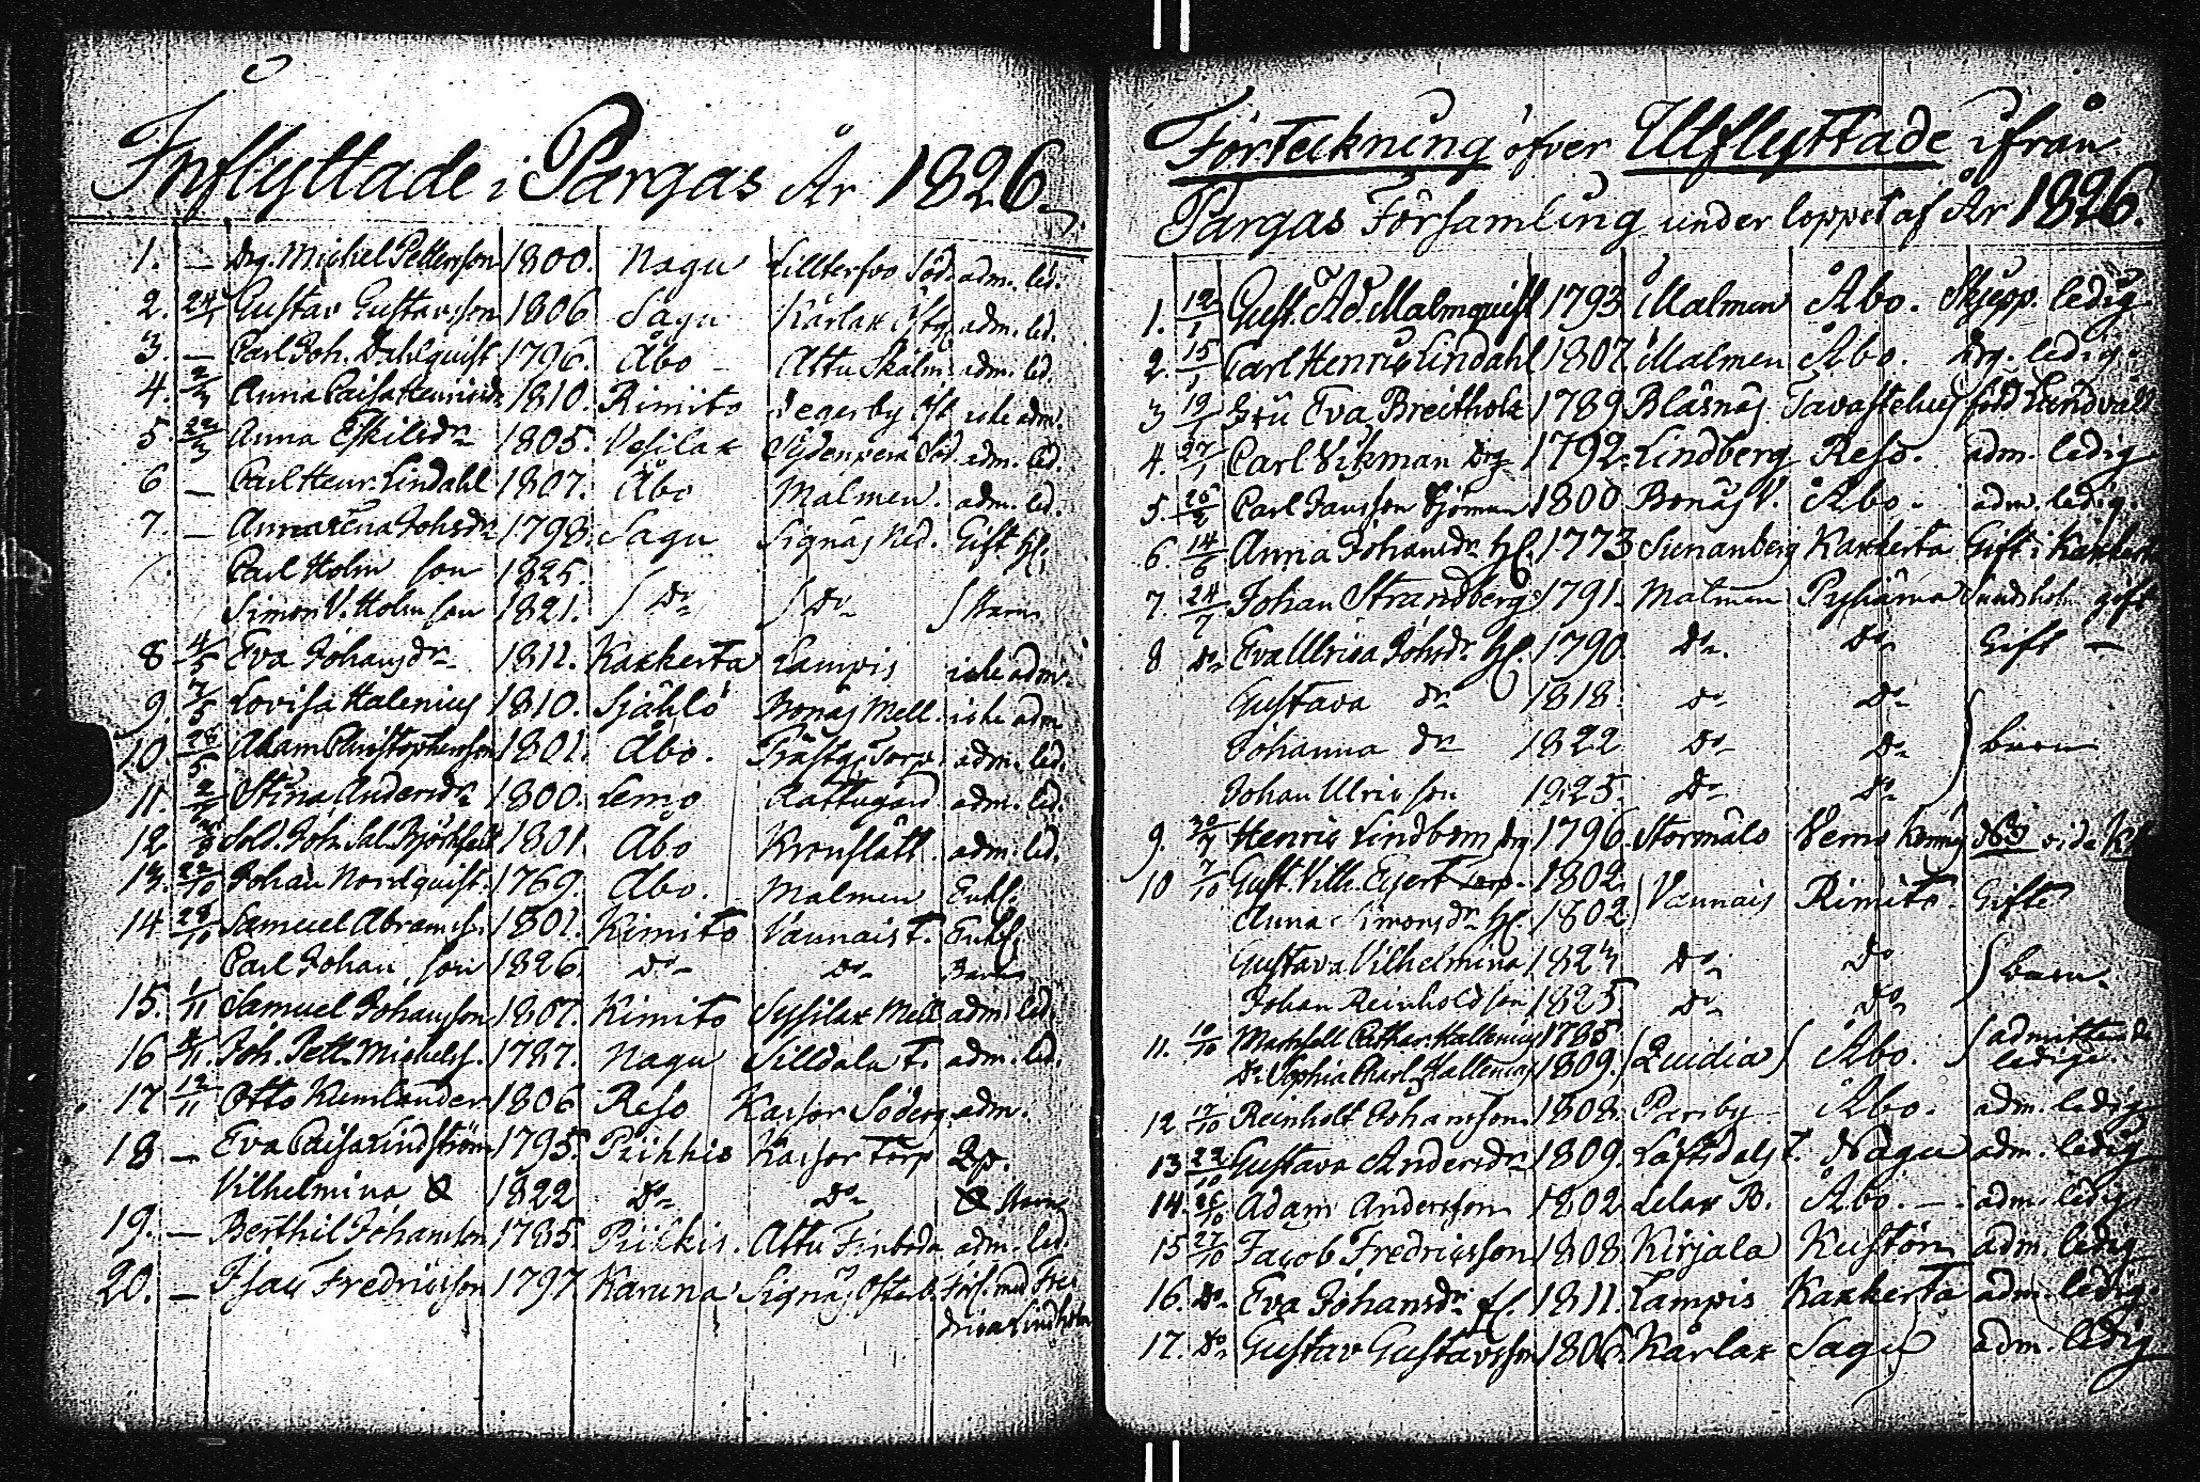 Inflyttade i Pargas År 1826.
1. — Drg. Michel Pettersson 1800. Nagu Lilltervo Söd. adm. led.
2. 24/1 Gustav Gustavsson 1806 Sagu Kårlax Östg. adm. led.
3. — Carl Joh. Dahlquist 1796. Åbo Attu Skälm adm. led.
4. Anna Caisa Henricsdr 1810. Rimito Degerby Öst. icke adm.
5. 22/3 Anna Eskilsdr 1805. Vesilax Sydenperä Söd. adm. led.
6 — Carl Henr. Lindahl 1807. Åbo Malmen. adm. led.
7. — Annalena Johsdr 1798. Sagu Signäs Ned. Gift Hu.
Carl Holm son 1825.
Simon V. Holm son 1821. Do Do Barn
8 4/5 Eva Johansdr 1811. Kakkerta Lampis icke adm.
9. 7/5 Lovisa Halenius 1810. Själlö Bonäs Mell. icke adm
10. 28/5 Adam Christophersson 1801. Åbo. Prästg. Torp. adm. led.
11. Stina Andersdr 1800. Lemo Rattugård adm. led.
12 Sold. Joh. Sal. Björkfelt 1801. Åbo Kronslätt. adm. led.
13. 22/10 Johan Nordquist. 1769. Åbo. Malmen Enkl.
14 28/10 Samuel Abramss. 1801. Kimito Vännais t. Enkl.
Carl Johan son 1826. Do Do Barn
15. 1/11 Samuel Johansson 1807. Kimito Sysilax Mell. adm. led.
16 8/11 Joh. Pett. Michelss. 1787. Nagu Silldala t. adm. led.
17 12/11 Otto Kumlander 1806 Reso Kaisor Söderg. adm.
18 — Eva Caisa Lindström 1795. Pikkis Kaisor Torp Qp.
Vilhelmina 1822 Do Do Barn
19. — Berthil Johansson 1785. Piikkis. Attu Finboda adm. led.
20. — Isac Fredricsson 1797. Karuna Signäs Österb. förl. med Fre
drica Lindholm
Förteckning öfver Utflyttade ifrån
Pargas Församling under loppet af År 1826.
1. 12/1 Gust. Ad. Malmquist 1793 Malmen Åbo. Skjepp. ledig
2. 15/1 Carl Henric Lindahl 1807. Malmen Åbo. Drg. ledig.
3 19/1 Fru Eva Breitholtz 1789 Bläsnäs Tavastehus född Lundvall
4. 27/1 Carl Vikman Drg 1792. Lindberg Reso. adm. ledig
5. Carl Jansson Sjöman 1800 Bonäs V. Åbo. adm. ledig.
6 14/6 Anna Johansdr Hu. 1773 Sunnanberg Kakkerta Gift i Kakkerta
7. 24/7 Johan Strandberg 1791. Malmen Pyhämä Sundsholm gift
8 Do Eva Ulrica Johsdr. Hu. 1790. Do Do Gift —
Gustava dr 1818. Do Do
Johanna dr 1822 Do Do barn
Johan Ulric son 1825. Do Do
9. 30/7 Henric Lindbom Drg 1796. Stormålö Vemo
10 7/10 Gust. Vilh. Ejert Torp. 1802.
Anna Simonsdr Hu. 1802 Vannais Rimito. Gifte
Gustava Vilhelmina 1824 Do Do
Johan Reinhold son 1825 Do Do barn.
11. 10/10 Mamsell Cathar. Hallenius 1785
Do Sophia Charl. Hallenius 1809. Quidia Åbo. admitterade ledige.
12 17/10 Reinholt Johansson. 1808. Parsby Åbo. adm. ledig
13 22/10 Gustava Andersdr 1809. Löfsdals t. Nagu adm. ledig
14. 26/10 Adam Andersson 1802 Lelax B. Åbo. — adm. ledig
15 27/10 Jacob Fredricsson 1808. Kirjala Kustön adm. ledig
16. Do Eva Johansdr 1811. Lampis Kakkerta adm. ledig.
17. Do Gustav Gustavsson 1806. Kårlax Sagu adm. ledig